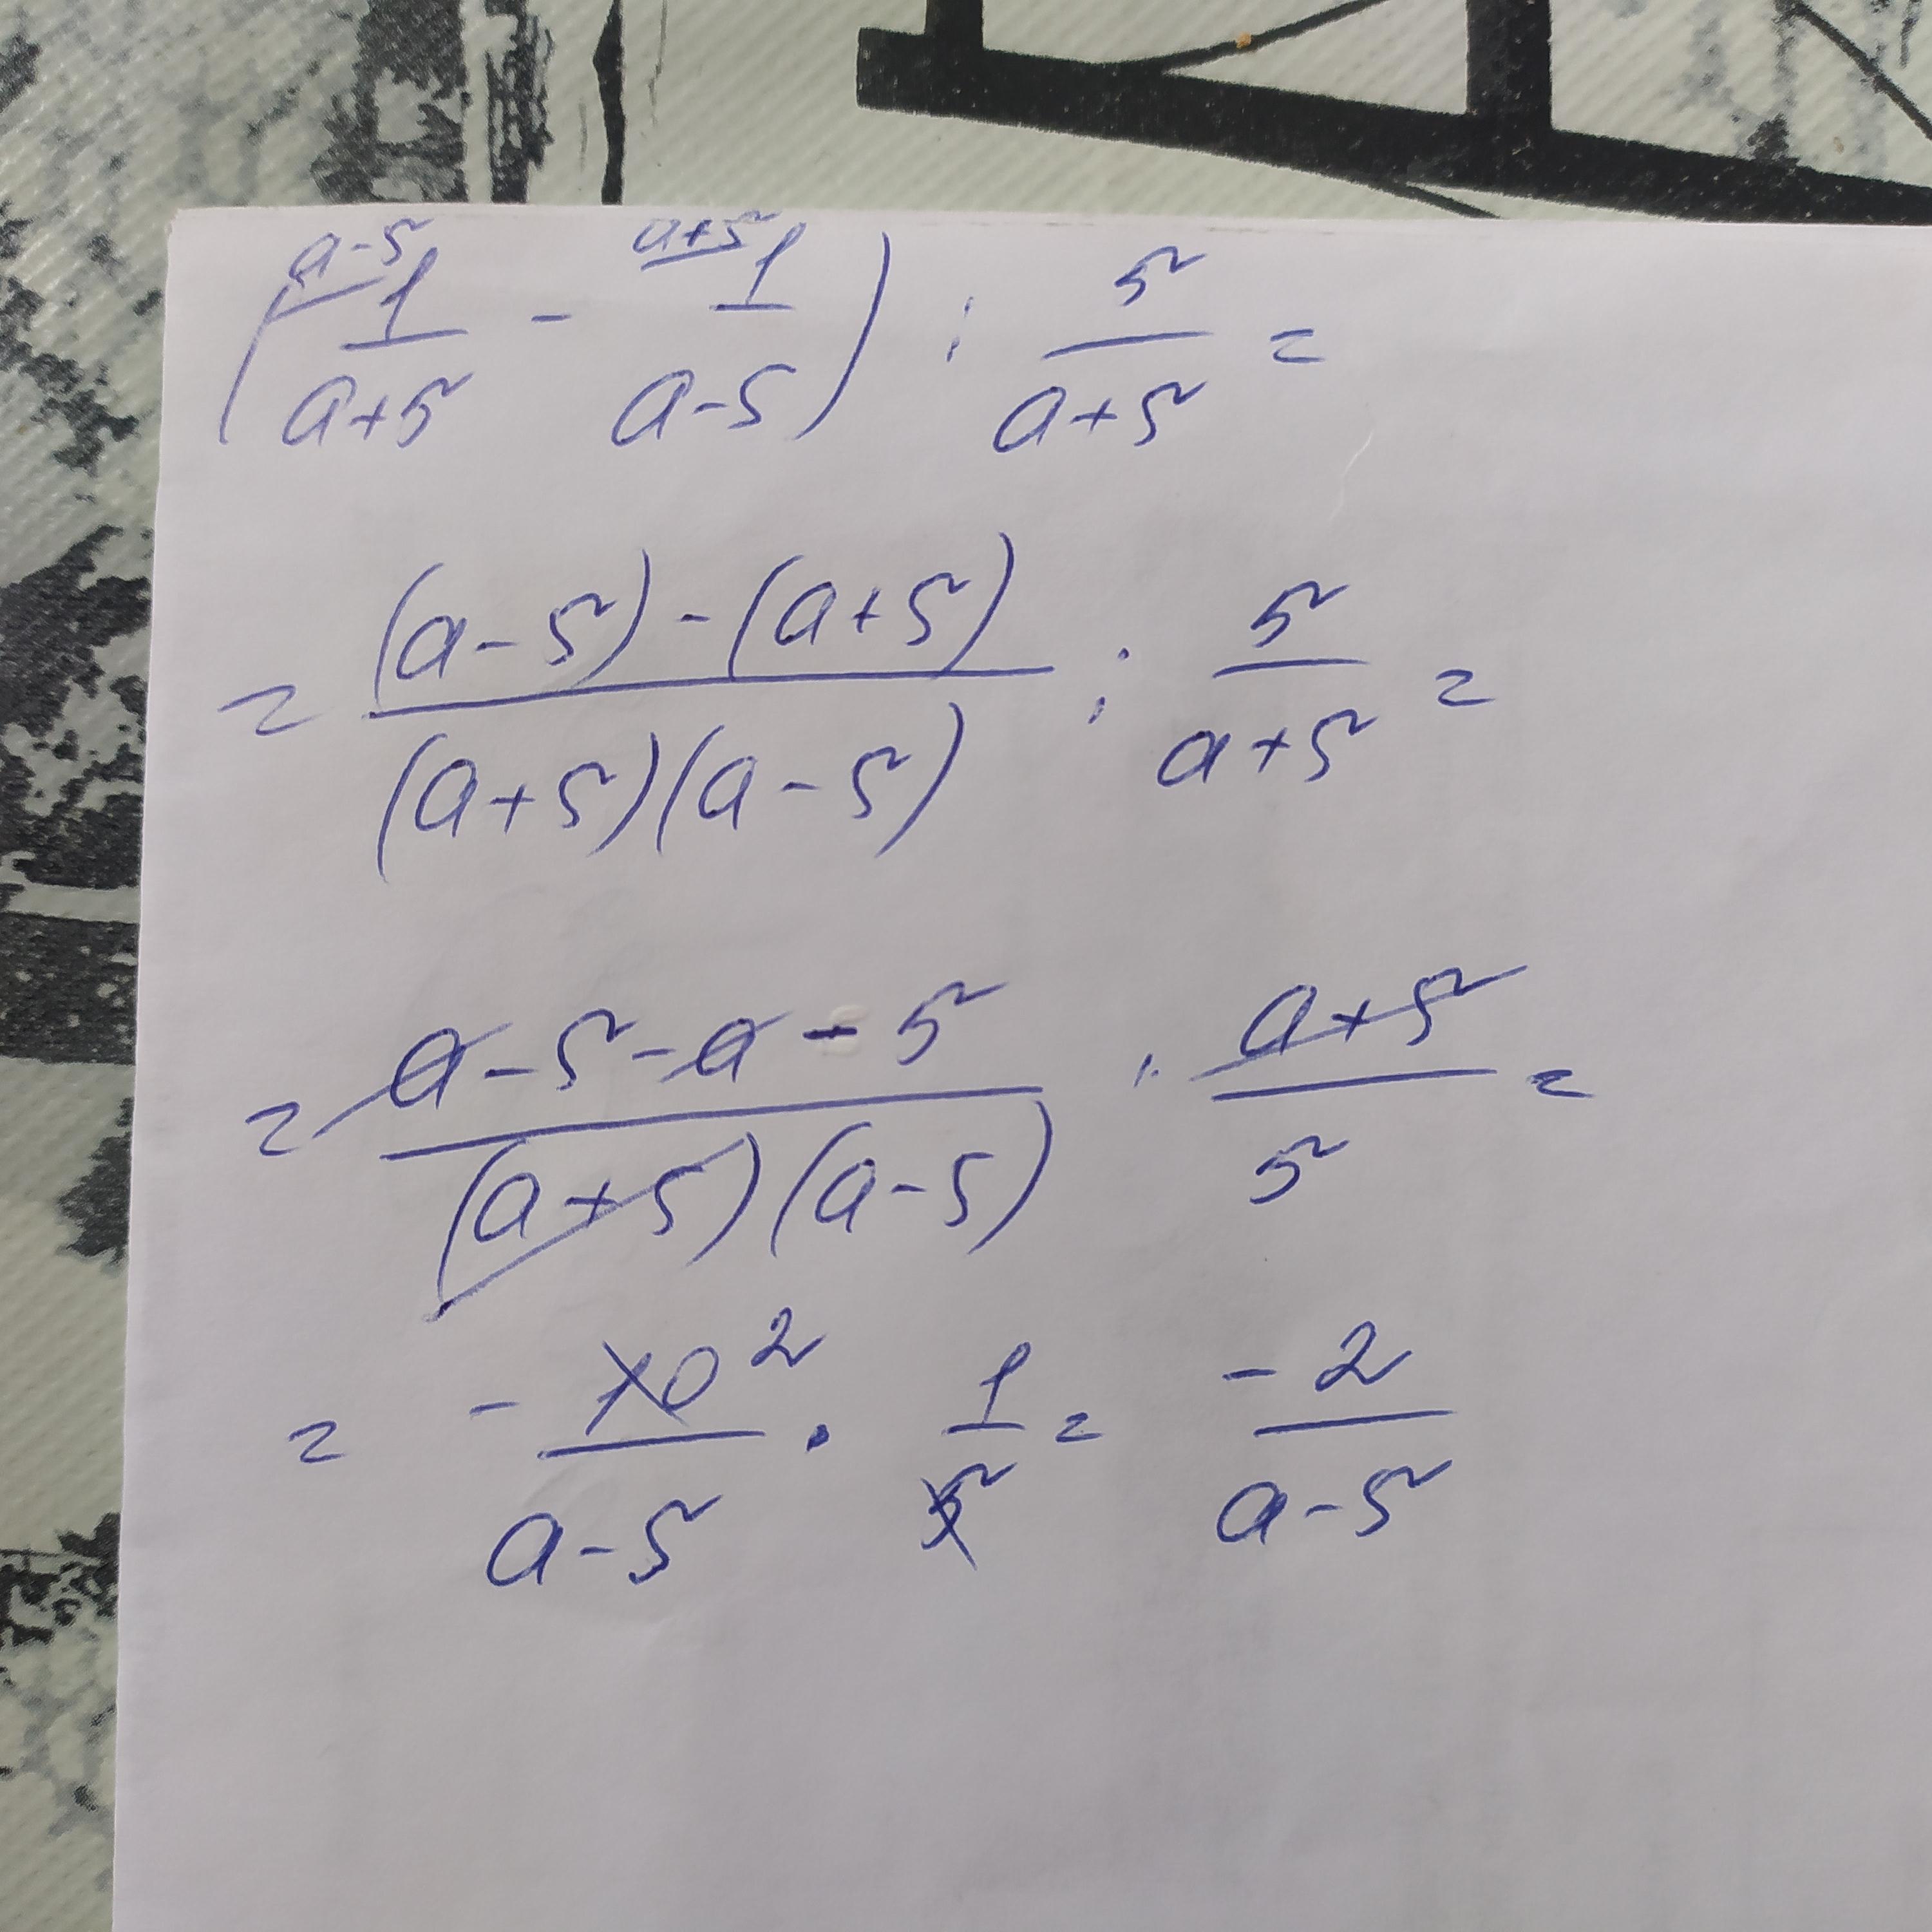 (a-5 1/(a+5) - a+5 1/(a-5)) : 5/(a+5) =
= ((a-5)-(a+5))/((a+5)(a-5)) : 5/(a+5) =
= (a-5-a-5)/((a+5)(a-5)) · (a+5)/5 =
= - 10 2/(a-5) · 1/5 = -2/(a-5)